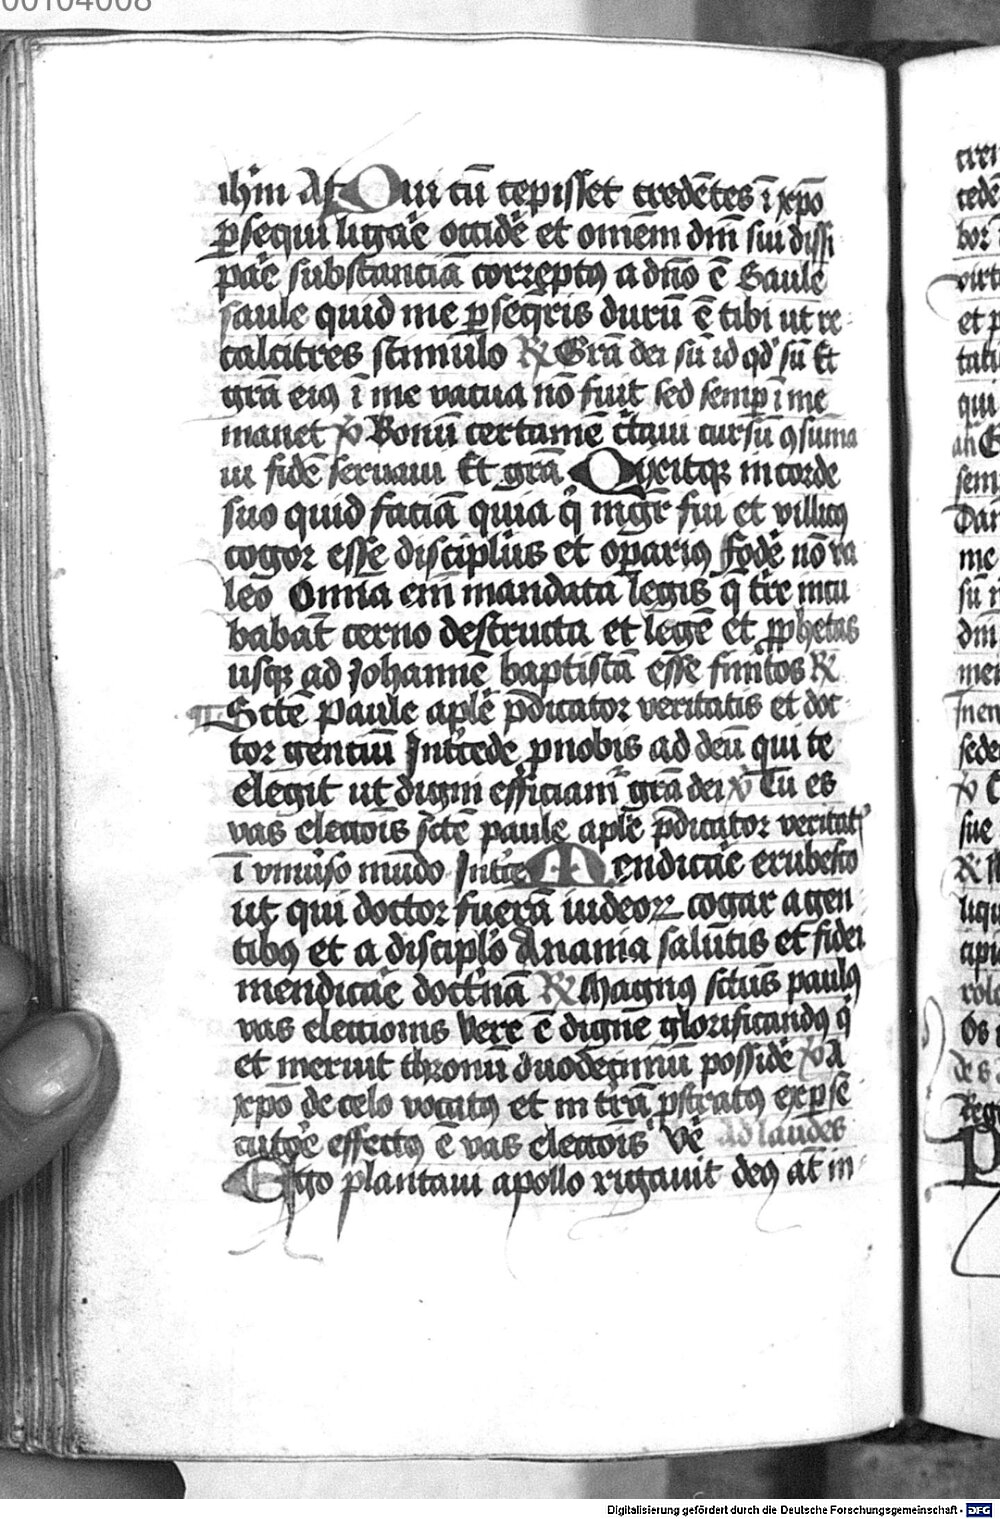 00104008
ihm̄ Af Qui cū cepisset credētes ī xp̄o
ꝑsequi ligar̄e occider̄e et omēm dm̄ sui dissi
par̄e substanciā correptꝯ a dn̄o ē Saule
saule quid me ꝑseqr̄is durū ē tibi ut re
calcitres stimulo ℟ Grā dei sū id qd̓ sū Et
grā eiꝯ ī me vacua nō fuit sed semꝑ ī me
manet ℣ Bonū certamē c̄taui cursū ꝯsūma
ui fidē seruaui Et grā Queritqꝫ in corde
suo quid faciā quia q̓ mgr̄ fui et villicꝯ
cogor esse discipl̄us et oꝑariꝯ fodēr nō va
leo Omīa em̄ mandata legis q̄ t̄re incu
babāt cerno destructa et legē et ꝓphetas
usqꝫ ad Johannē baptistā esse finitos ℟
Sctē Paule apl̄e p̄dicator veritatis et doc
tor genciū Int̄cede ꝓ nobis ad deū qui te
elegit ut digni efficiam̄ grā dei ℣ Tū es
vas elect̄ois sctē paule apl̄e p̄dicator veritat̄
ī vniūso mūdo Int̄ce Mendicar̄e erubesco
ut qui doctor fuerā iudeoꝝ cogar a gen
tibꝯ et a discipl̄o Anania salūtis et fidei
mendicar̄e doctn̄ā ℟ Magnꝯ sctūs paulꝯ
vas electionis vere ē digne glorificandꝯ q̓
et meruit thronū duodecimū possidēr ℣ A
xp̄o de celo vocatꝯ et in t̄rā ꝓstratꝯ ex ꝑse
cutor̄e effectꝯ ē vas elect̄ois Ve Ad laudes
Ego plantaui apollo rigauit deꝯ at̄ in
Digitalisierung gefördert durch die Deutsche Forschungsgemeinschaft - DFG